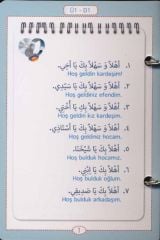 01 - 01
١. أَهْلاً وَ سَهْلاً بِكَ يَا أَخِي.
Hoş geldin kardeşim!
٢. أَهْلاً وَ سَهْلاً بِكَ يَا سَيِّدِي.
Hoş geldiniz efendim.
٣. أَهْلاً وَ سَهْلاً بِكِ يَا أُخْتِي.
Hoş geldin kız kardeşim.
٤. أَهْلاً وَ سَهْلاً بِكَ يَا أُسْتَاذِي.
Hoş geldiniz hocam.
٥. أَهْلاً بِكَ يَا شَيْخَنَا.
Hoş bulduk hocamız.
٦. أَهْلاً بِكَ يَا اِبْنِي.
Hoş bulduk oğlum.
٧. أَهْلاً بِكَ يَا صَدِيقِي.
Hoş bulduk arkadaşım.
1